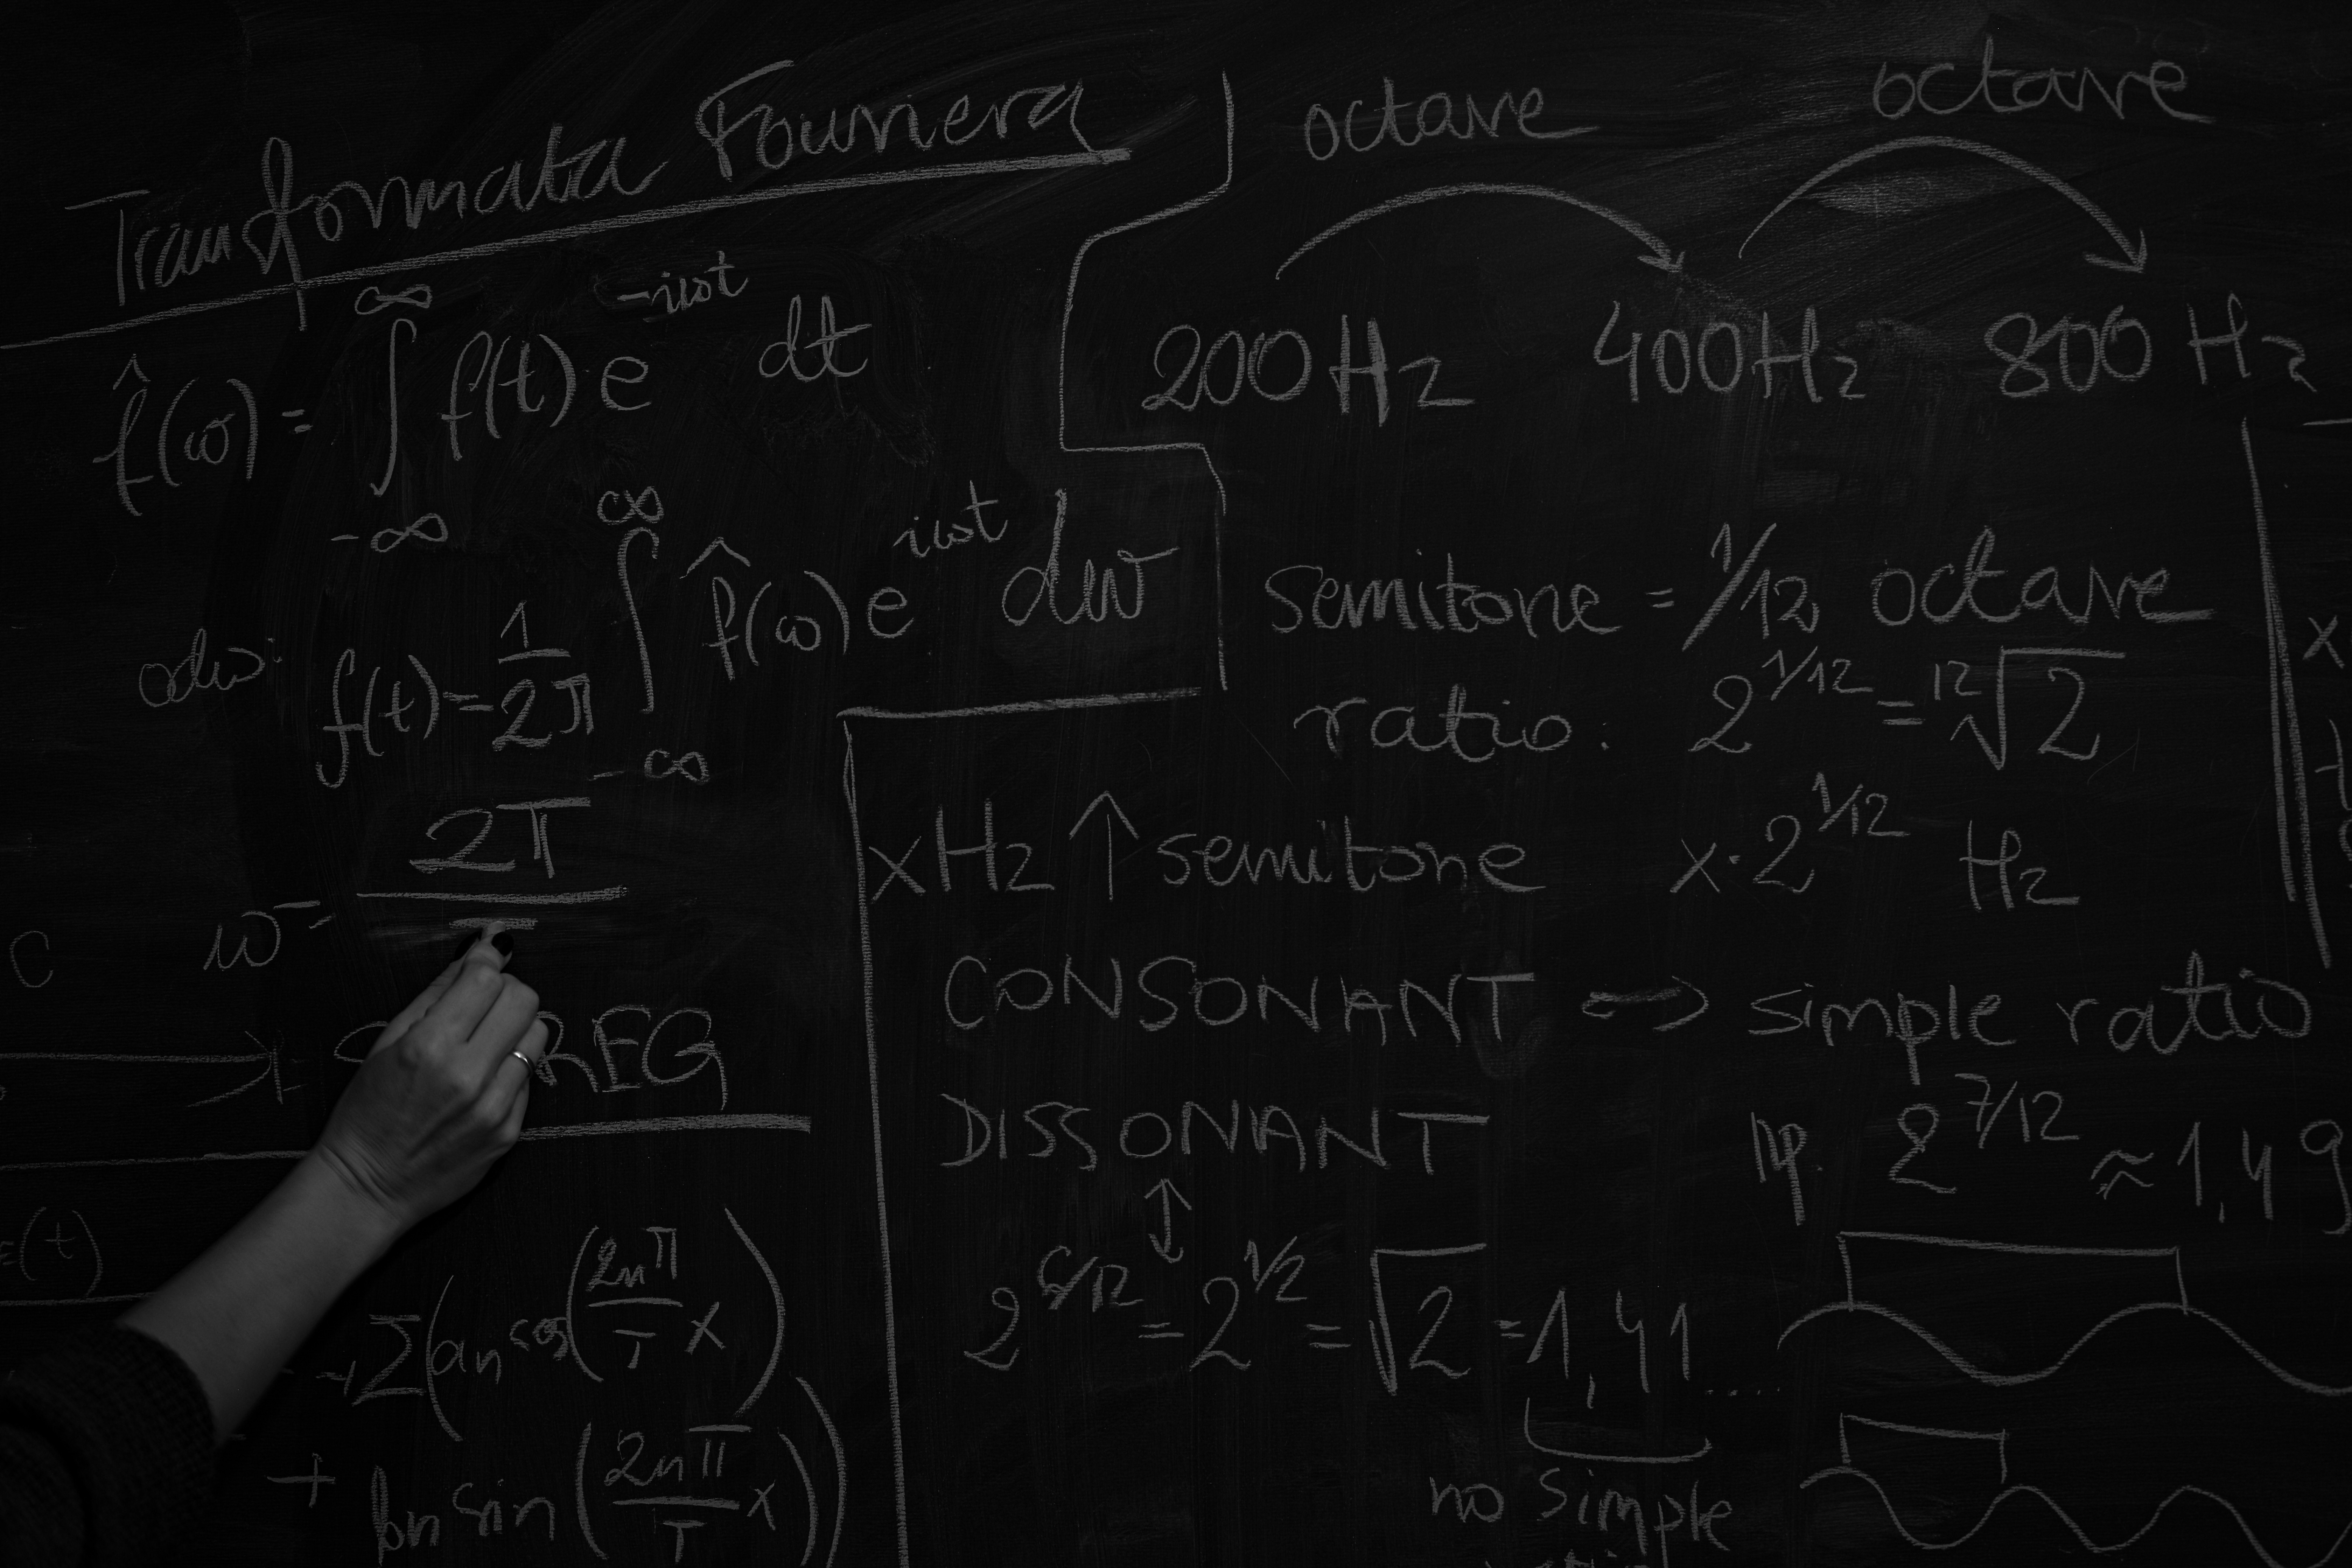 Transformata Fouriera
f̂(ω) = ∫_{-∞}^{∞} f(t) e^{-iωt} dt
odw: f(t) = 1/2π ∫_{-∞}^{∞} f̂(ω) e^{iωt} dω
ω = 2π/
C
REG
(t)
Σ(an cos(2nπ/T x)
+ bn sin(2nπ/T x))
octave octave
200 Hz 400 Hz 800 Hz
semitone = 1/12 octave
ratio: 2^{1/12} = ¹²√2
x Hz ↑ semitone x·2^{1/12} Hz
CONSONANT → simple ratio
np. 2^{7/12} ≈ 1,49
DISSONANT
↕
2^{6/12} = 2^{1/2} = √2 = 1,41.....
no simple
x